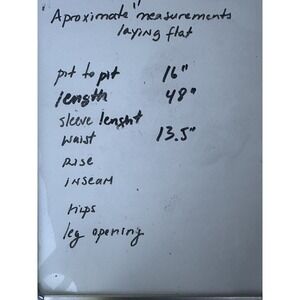 Aproximate "measurements
laying flat
pit to pit 16"
length 48"
sleeve lenght
waist 13.5"
RISE
INSEAM
Hips
leg opening